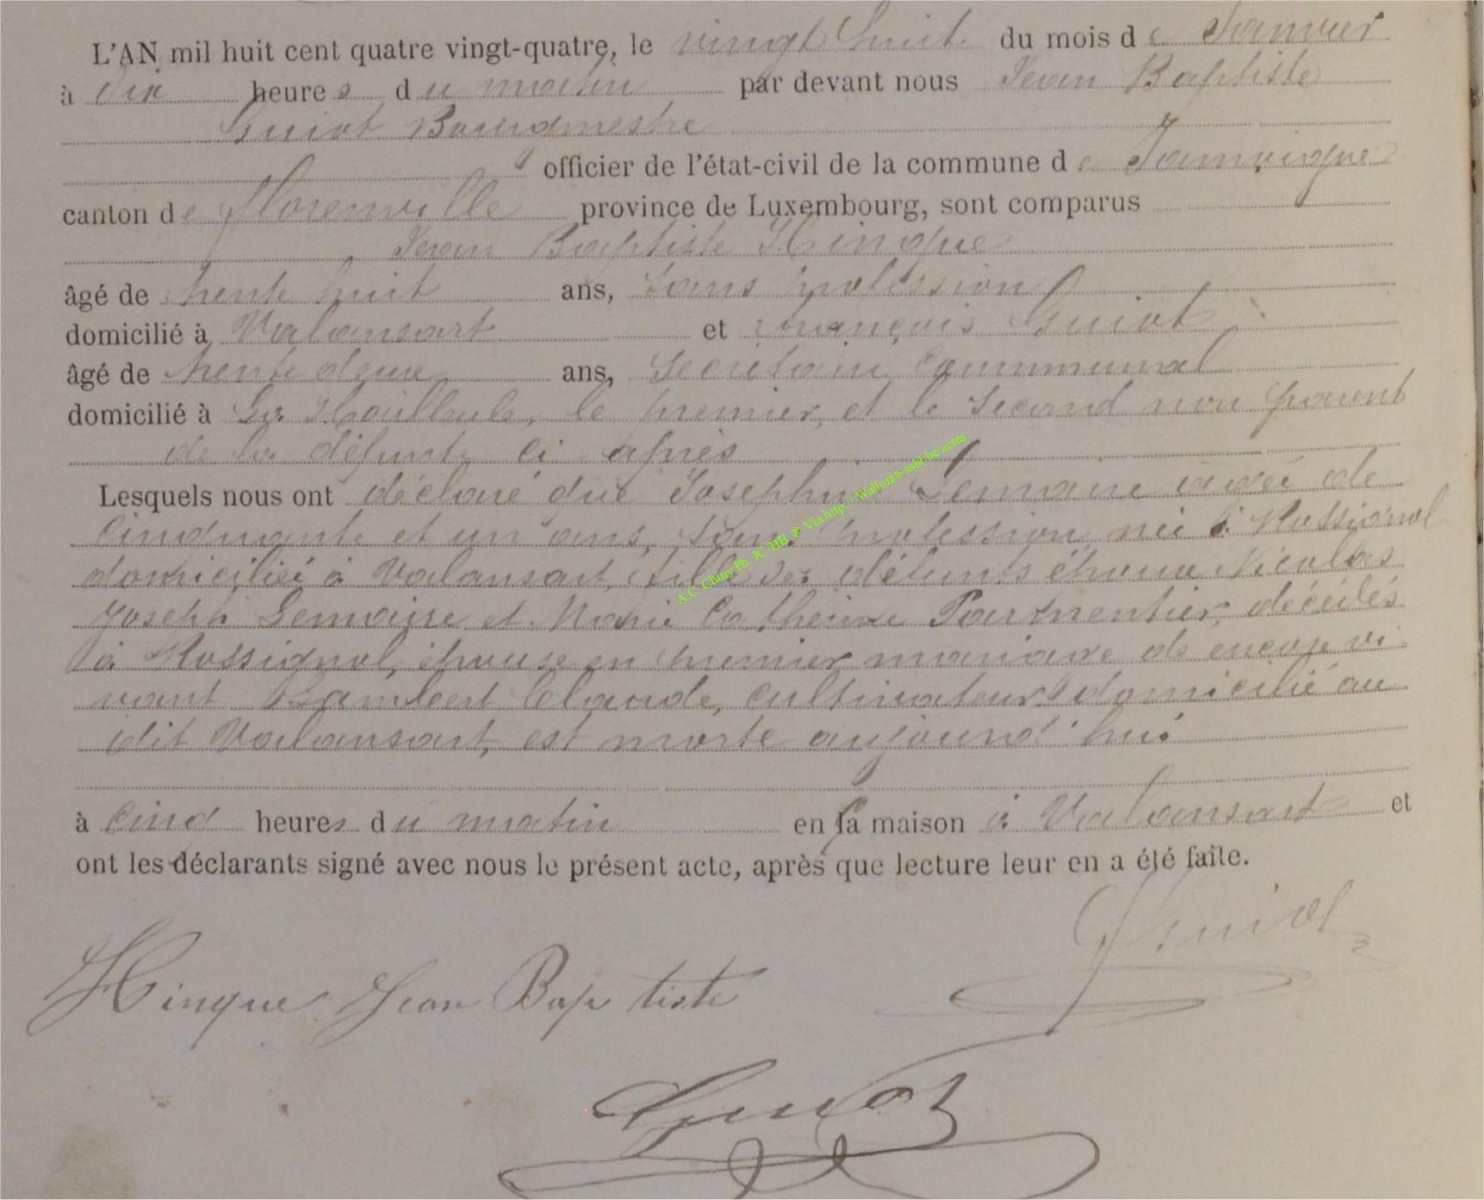 L'AN mil huit cent quatre vingt-quatre, le vingt huit du mois de Janvier
à dix heures du matin par devant nous Jean Baptiste
Guiot Bourgmestre
officier de l'état-civil de la commune de Jamoigne
canton de Florenville province de Luxembourg, sont comparus
Jean Baptiste Hinque
âgé de trente huit ans, sans profession
domicilié à Valansart et François Guiot
âgé de trente deux ans, Secrétaire Communal
domicilié à le premier et le second non parent
de la défunte ci après
Lesquels nous ont déclaré que Joséphine Lemaire agée de
cinquante et un ans, sans profession née à Rossignol
domiciliée à Valansart, fille des défunts époux Nicolas
Joseph Lemaire et Marie Catherine Parmentier, décédés
à Rossignol, épouse en premier mariage de encore vi
vant Lambert Claude, cultivateur domicilié au
dit Valansart, est morte aujourd'hui
à cinq heures du matin en sa maison à Valansart et
ont les déclarants signé avec nous le présent acte, après que lecture leur en a été faite.
Guiot
Hinque Jean Baptiste
Guiot